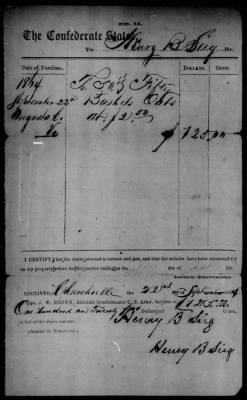 No. 12.
The Confederate States,
To Henry B Sieg Dr.
Date of Purchase. Dolls. Cts.
1864 To Fifty
September 22d Bushels Oats
Augusta Co. at $2.50 $ 125.00
Va
I CERTIFY that the above account is correct and just, and that the articles have been accounted for
on my property return for the quarter ending the day of 186
Assistant Quartermaster
RECEIVED, Churchville the 22nd of September
Capt. J. W. BROWN, Assistant Quartermaster C. S. Army, the sum of
One hundred and Twenty Dollars and Cents,
in full of the above account.
(SIGNED IN DUPLICATE.) Henry B Sieg
Henry B Sieg